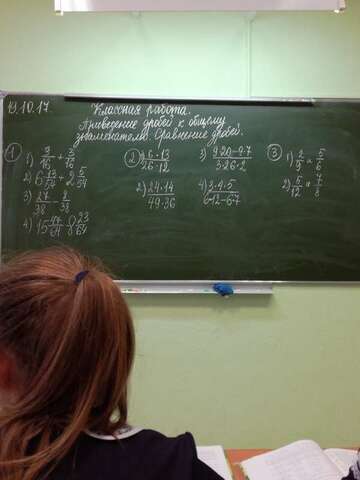 19.10.17
Классная работа.
Приведение дробей к общему
знаменателю. Сравнение дробей.
① 1) 7/16 + 3/16
2) 6 13/54 + 2 5/54
3) 27/38 - 8/38
4) 15 44/64 - 8 23/64
② 1) 26·13/26·12
2) 24·14/49·36
3) 9·20-9·7/3·26·2
4) 3·4·5/6·12-6·7
③ 1) 2/9 и 5/6
2) 5/12 и